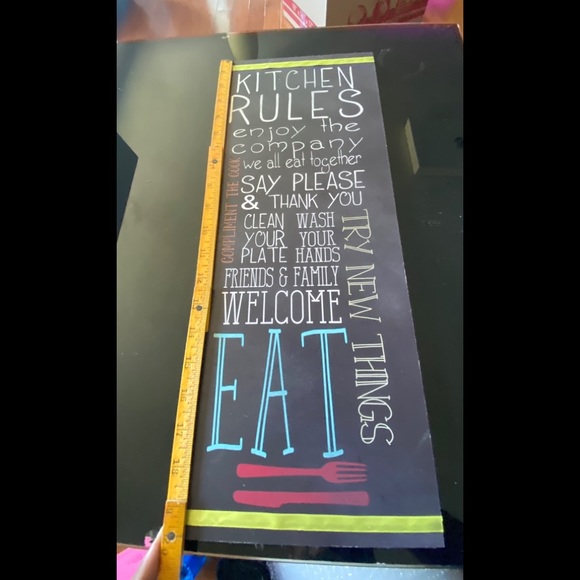 KITCHEN
RULES
enjoy the
company
we all eat together
COMPLIMENT THE COOK
SAY PLEASE
& THANK YOU
CLEAN WASH
YOUR YOUR
PLATE HANDS
TRY NEW THINGS
FRIENDS & FAMILY
WELCOME
EAT